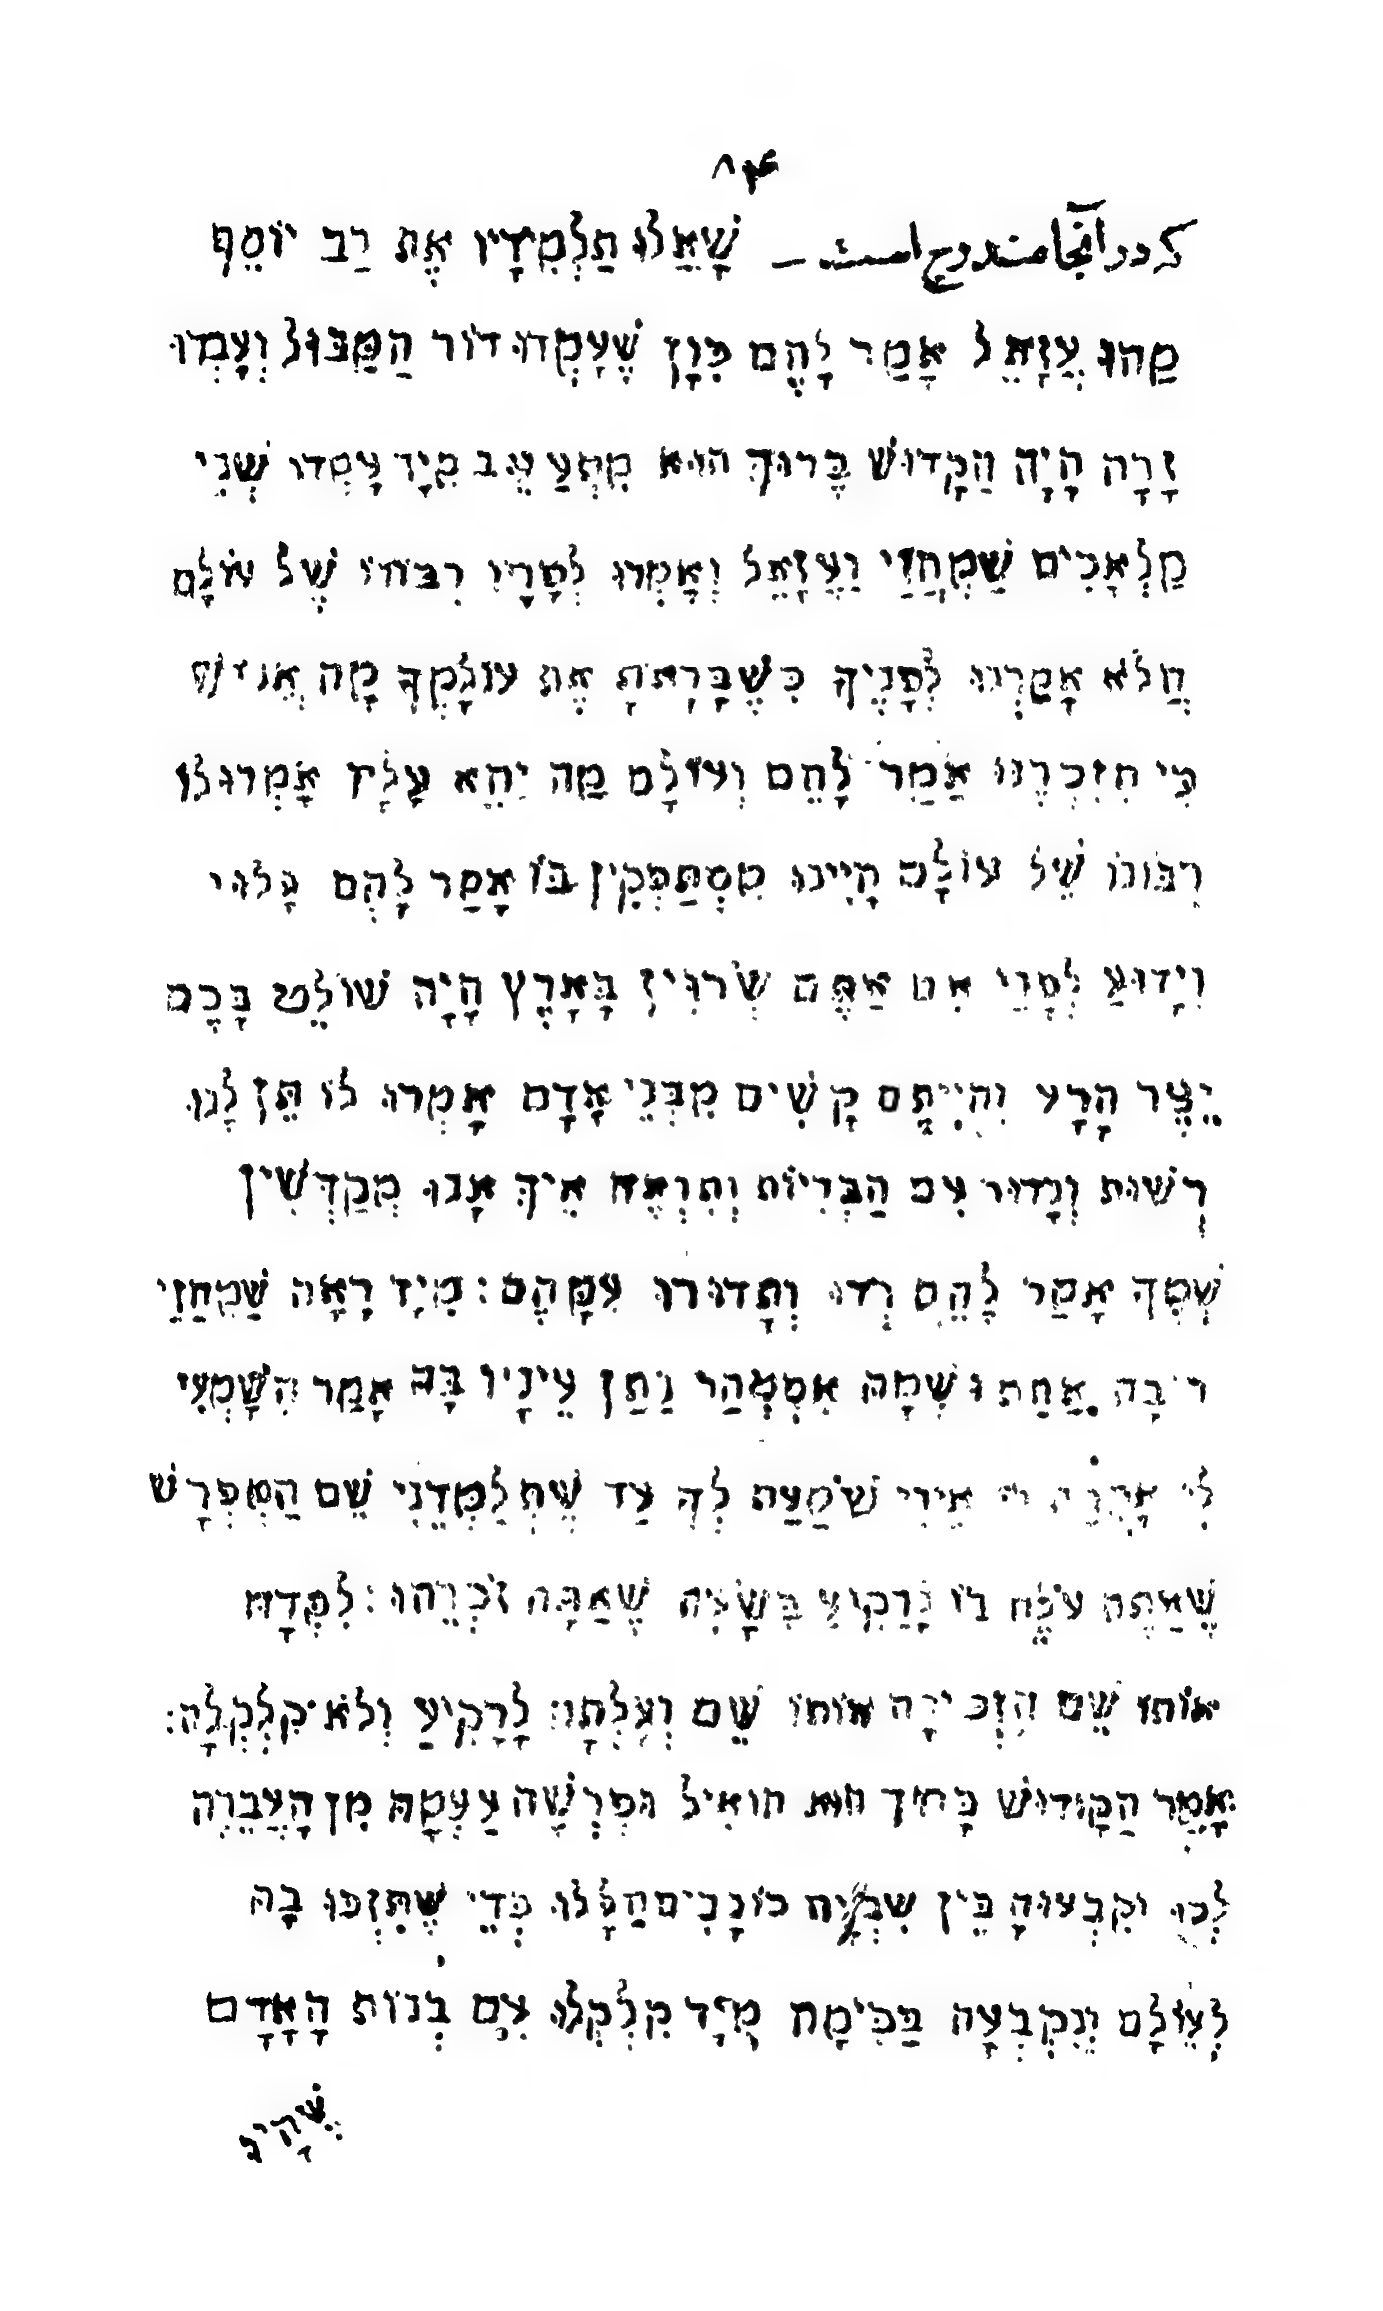 ۸۴
که در آنجا مندرج است — שָׁאֲלוּ תַלְמִידָיו אֶת רַב יוֹסֵף
מַהוּ עֲזָאֵל אָמַר לָהֶם כִּוָן שֶׁעָמְדוּ דוֹר הַמַּבּוּל וְעָבְדוּ
זָרָה הָיָה הַקָדוֹשׁ בָּרוּךְ הוּא מִתְעַצֵב מִיָד עָמְדוּ שְׁנֵי
מַלְאָכִים שַׁמְחֲזַי וַעֲזָאֵל וְאָמְרוּ לְפָנָיו רִבּוֹנוֹ שֶׁל עוֹלָם
הֲלֹא אָמַרְנוּ לְפָנֶיךָ כְּשֶׁבָּרָתָ אֶת עוֹלָמְךָ מָה אֱנוֹשׁ
כִּי תִזְכְּרֶנּוּ אָמַר לָהֶם וְעוֹלָם מַה יְהֵא עָלָיו אָמְרוּ לוֹ
רִבּוֹנוֹ שֶׁל עוֹלָם הָיִינוּ מִסְתַּפְּקִין בּוֹ אָמַר לָהֶם גָּלוּי
וְיָדוּעַ לְפָנַי אִם אַתֶּם שְׁרוּיִן בָּאָרֶץ הָיָה שׁוֹלֵט בָּכֶם
יֵצֶר הָרָע וִהְיִיתֶם קָשִׁים מִבְּנֵי אָדָם אָמְרוּ לוֹ תֵּן לָנוּ
רְשׁוּת וְנָדוּר עִם הַבְּרִיוֹת וְתִרְאֶה אֵיךְ אָנוּ מְקַדְּשִׁין
שְׁמְךָ אָמַר לָהֶם רְדוּ וְתָדוּרוּ עִמָּהֶם: מִיָד רָאָה שַׁמְחַזַי
רִיבָה אַחַת וּשְׁמָהּ אִסְטְהַר נָתַן עֵינָיו בָּהּ אָמַר הִשָּׁמְעִי
לִי אָמְרָה לוֹ אֵינִי שׁוֹמַעַת לְךָ עַד שֶׁתְּלַמְּדֵנִי שֵׁם הַמְפֹרָשׁ
שֶׁאַתָּה עוֹלֶה בוֹ לָרָקִיעַ בְּשָׁעָה שֶׁאַתָּה זוֹכְרֵהוּ: לִמְּדָהּ
אוֹתוֹ שֵׁם הִזְכִּירָה אוֹתוֹ שֵׁם וְעָלְתָה לָרָקִיעַ וְלֹא קִלְקְלָה:
אָמַר הַקָּדוֹשׁ בָּרוּךְ הוּא הוֹאִיל וּפֵרְשָׁה עַצְמָהּ מִן הָעֲבֵרָה
לְכוּ וְקִבְעוּהָ בֵּין שִׁבְעָה כּוֹכָבִים הַלָּלוּ כְּדֵי שֶׁתִּזְכּוּ בָהּ
לְעוֹלָם וְנִקְבְּעָה בַּכִּימָה מִיָד קִלְקְלוּ עִם בְּנוֹת הָאָדָם
שֶׁהָיוּ